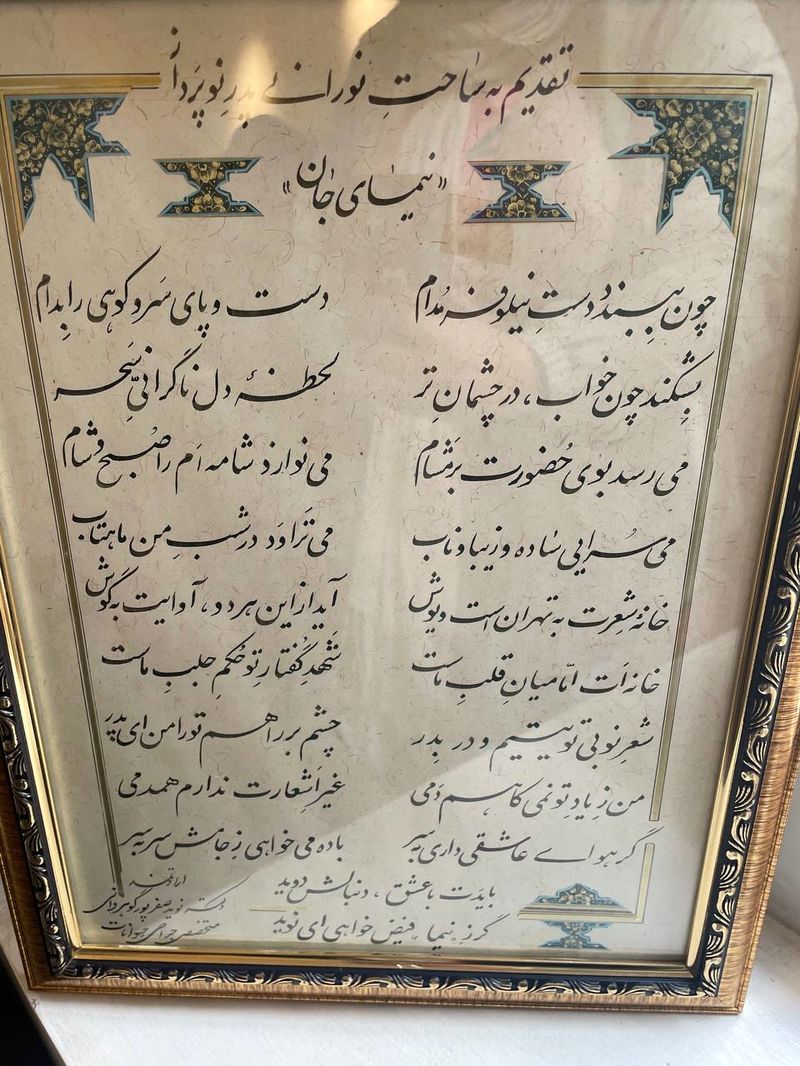 تقدیم به ساحتِ نورانی پدرِ نوپَرداز
«نیمای جان»
چون بِبندد دستِ نیلوفر مُدام دست و پای سَرو کوهی را بدام
بِشکند چون خواب، در چشمانِ تَر لحظهٔ دل ناگرانیِّ سَحر
می رسد بوی حُضورت بَر مَشام می نوازد شامه اَم را صُبح و شام
می سُرایی ساده و زیبا و ناب می تَراوَد در شبِ من ماهتاب
خانهٔ شِعرت به تهران است و یوش آید از این هر دو، آوایت به گوش
خانه اَت امّا میانِ قلبِ ماست شَهدِ گُفتارِ تو حُکمِ حلبِ ماست
شعرِ نو بی تو یتیم و در بِدر چشم بر راهم تو را من ای پدر
من زِ یادِ تو نمی کاهم دَمی غیرِ اَشعارت ندارم همدمی
گر هوای عاشقی داری به سر باده می خواهی زِ جامش سر به سر
بایدَت با عشق، دنبالش دوید
گر ز "نیما" فیض خواهی ای نوید
ارادتمند
دکتر نوید صفرپور گوهردانی
متخصص جراحی حیوانات